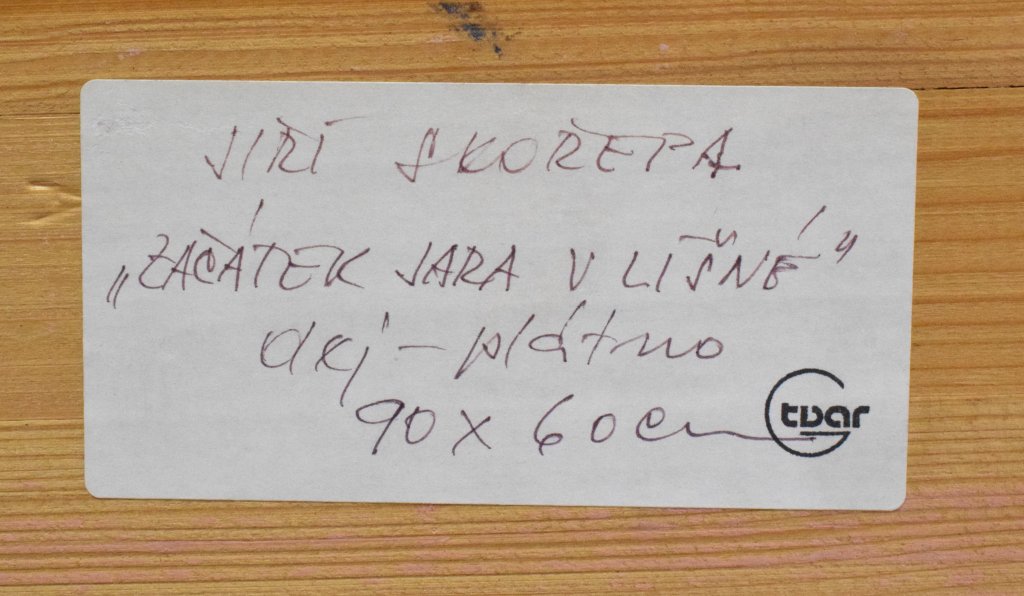 JIŘÍ SKOŘEPA
„ZAČÁTEK JARA V LÍŠNÉ"
olej - plátno
90 x 60 cm
tvar